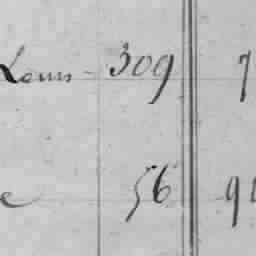 Louis - 309 7
e 56 9